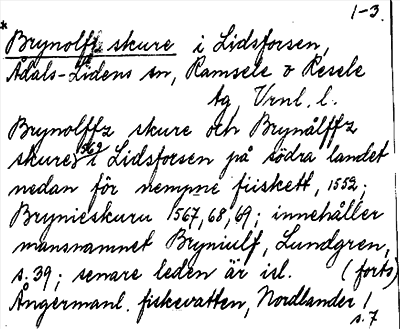 1-3.
* Brynolffz skure i Lidsforsen,
Ådals-Lidens sn, Ramsele o Resele
tg, Vrnl. l.
Brynolffz skure och Brynålffz
skure, 1569 i Lidsforsen på södra landet
nedan för nempne fiiskett, 1552;
Brynieskuru 1567, 68, 69; innehåller
mansnamnet Bryniulf, Lundgren,
s. 39; senare leden är isl. (forts)
Ångermanl. fiskevatten, Nordlander 1
s. 7